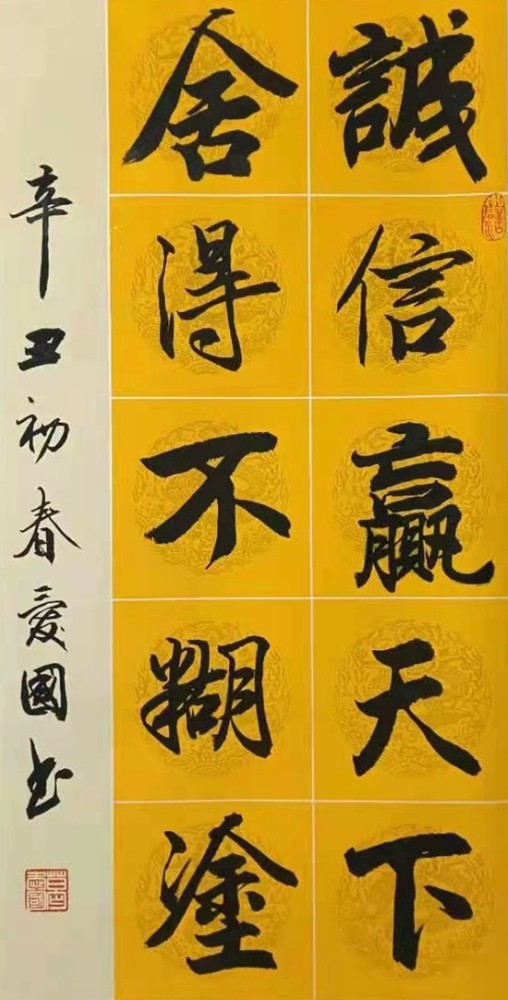 誠信贏天下
舍得不糊塗
辛丑初春爱國书